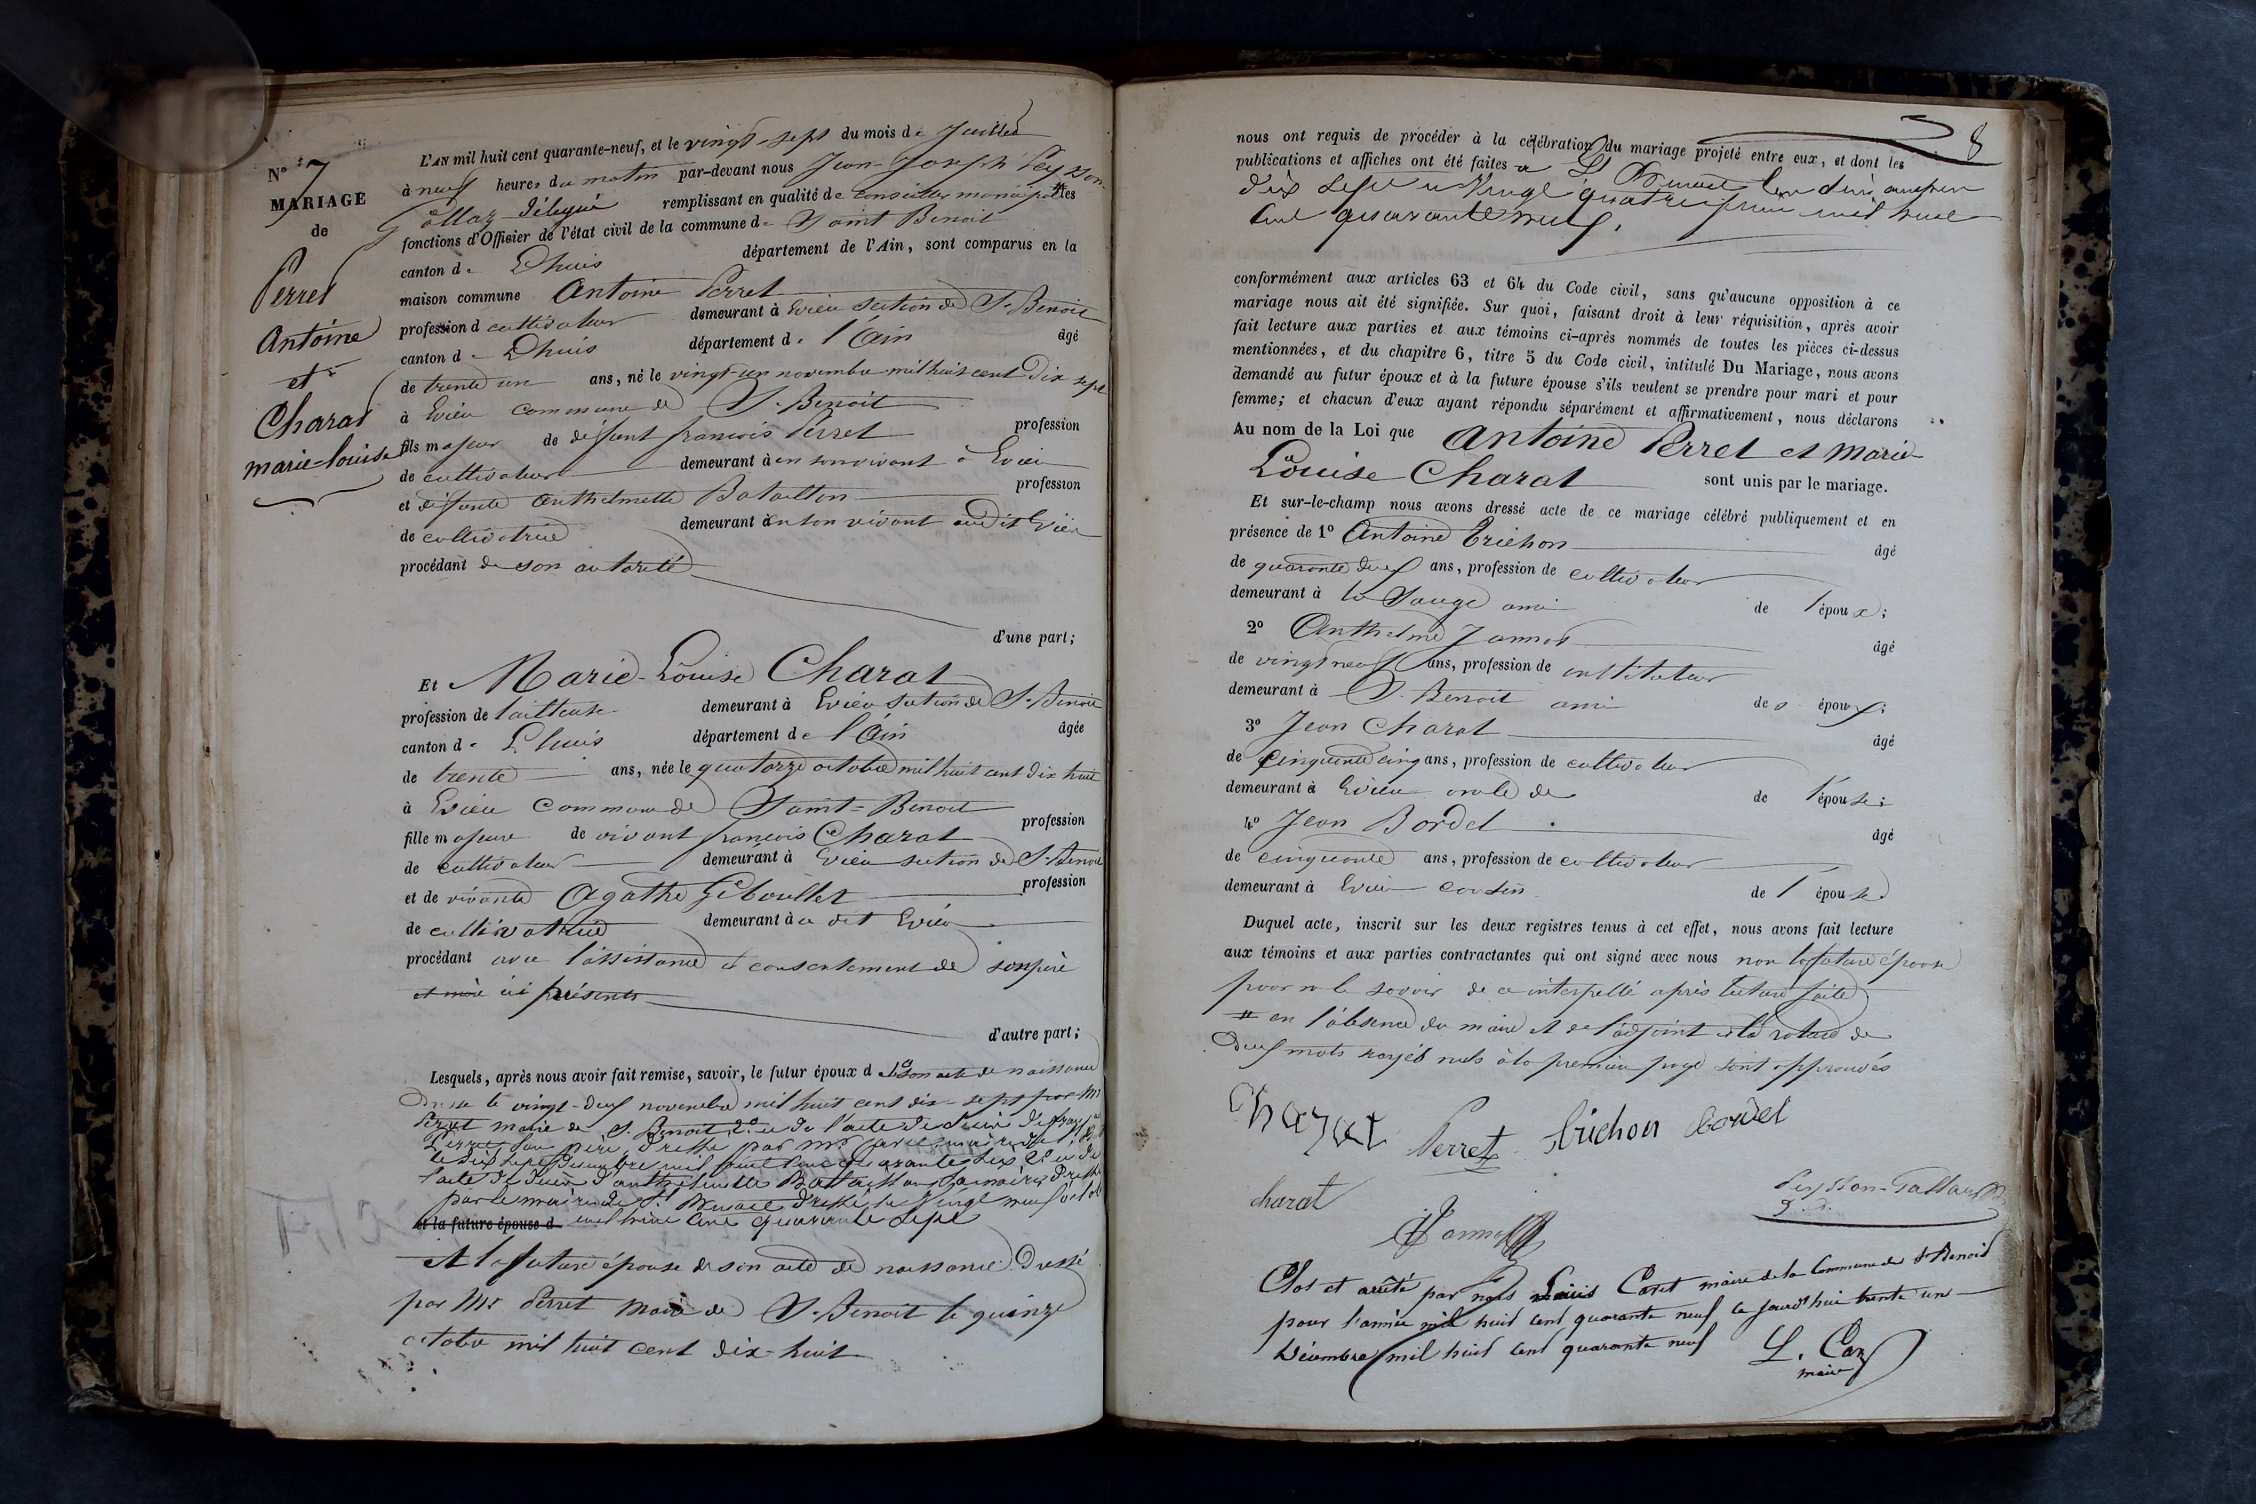 N° 7
MARIAGE
de
Perret
Antoine
et
Charat
marie-louise
L'AN mil huit cent quarante-neuf, et le vingt-sept du mois de Juillet
à neuf heures du matin par-devant nous Jean-Joseph Peysson
Gallay délégué remplissant en qualité de conseiller municipal les
fonctions d'Officier de l'état civil de la commune de Saint Benoit
canton de Lhuis département de l'Ain, sont comparus en la
maison commune Antoine Perret
profession de cultivateur demeurant à Evieu section de St. Benoit
canton de Lhuis département de l'Ain âgé
de trente un ans, né le vingt-un novembre mil huit cent dix sept
à Evieu commune de St. Benoit
fils majeur de défunt françois Perret profession
de cultivateur demeurant à en son vivant à Evieu
et défunte Anthelmette Bataillon profession
de cultivatrice demeurant en son vivant au dit Evieu
procédant de son autorité
d'une part;
Et Marie-Louise Charat
profession de tailleuse demeurant à Evieu section de St. Benoit
canton de Lhuis département de l'Ain âgée
de trente ans, née le quatorze octobre mil huit cent dix huit
à Evieu commune de Saint-Benoit
fille majeure de vivant françois Charat profession
de cultivateur demeurant à Evieu section de St. Benoit
et de vivante Agathe Giboullet profession
de cultivatrice demeurant à au dit Evieu
procédant avec l'assistance et consentement de son père
et mère ici présents
d'autre part;
Lesquels, après nous avoir fait remise, savoir, le futur époux d 1° son acte de naissance
Dressé le vingt-deux novembre mil huit cent dix-sept par Mr
Perret maire de St. Benoit, 2° de l'acte de décès de
Perret son père, Dressé par Mr maire de
le dix sept Décembre mil huit cent quarante six
l'acte de décès d'anthelmette Bataillon sa mère Dressé
par le maire de St Benoit Dressé le vingt neuf
et la future épouse d mil huit cent quarante sept
et la future épouse de son acte de naissance Dressé
par Mr Perret maire de St. Benoit le quinze
octobre mil huit cent dix-huit
8
nous ont requis de procéder à la célébration du mariage projeté entre eux, et dont les
publications et affiches ont été faites à St Benoit
dix sept Vingt quatre juin mil huit
cent quarante neuf.
conformément aux articles 63 et 64 du Code civil, sans qu'aucune opposition à ce
mariage nous ait été signifiée. Sur quoi, faisant droit à leur réquisition, après avoir
fait lecture aux parties et aux témoins ci-après nommés de toutes les pièces ci-dessus
mentionnées, et du chapitre 6, titre 5 du Code civil, intitulé Du Mariage, nous avons
demandé au futur époux et à la future épouse s'ils veulent se prendre pour mari et pour
femme; et chacun d'eux ayant répondu séparément et affirmativement, nous déclarons
Au nom de la Loi que Antoine Perret et marie-
Louise Charat sont unis par le mariage.
Et sur-le-champ nous avons dressé acte de ce mariage célébré publiquement et en
présence de 1° Antoine Trichon âgé
de quarante deux ans, profession de cultivateur
demeurant à la Sauge ami de l'époux;
2° Anthelme Jannet âgé
de vingt neuf ans, profession de instituteur
demeurant à St. Benoit ami des époux;
3° Jean Charat âgé
de cinquante cinq ans, profession de cultivateur
demeurant à Evieu oncle de de l'épouse;
4° Jean Bordel âgé
de cinquante ans, profession de cultivateur
demeurant à Evieu cousin de l'épouse
Duquel acte, inscrit sur les deux registres tenus à cet effet, nous avons fait lecture
aux témoins et aux parties contractantes qui ont signé avec nous non la future épouse
pour ne le savoir de ce interpellé après lecture faite
# en l'absence du maire et de l'adjoint et la rature de
deux mots rayés nuls à la première page sont approuvés
Charat Perret trichon bordel
charat
Peysson-Gallay
Clos et arrêté par nous Louis Caret maire de la Commune de St Benoit
pour l'année mil huit cent quarante neuf ce jourd'hui trente un
Décembre mil huit cent quarante neuf
L. Caret
maire